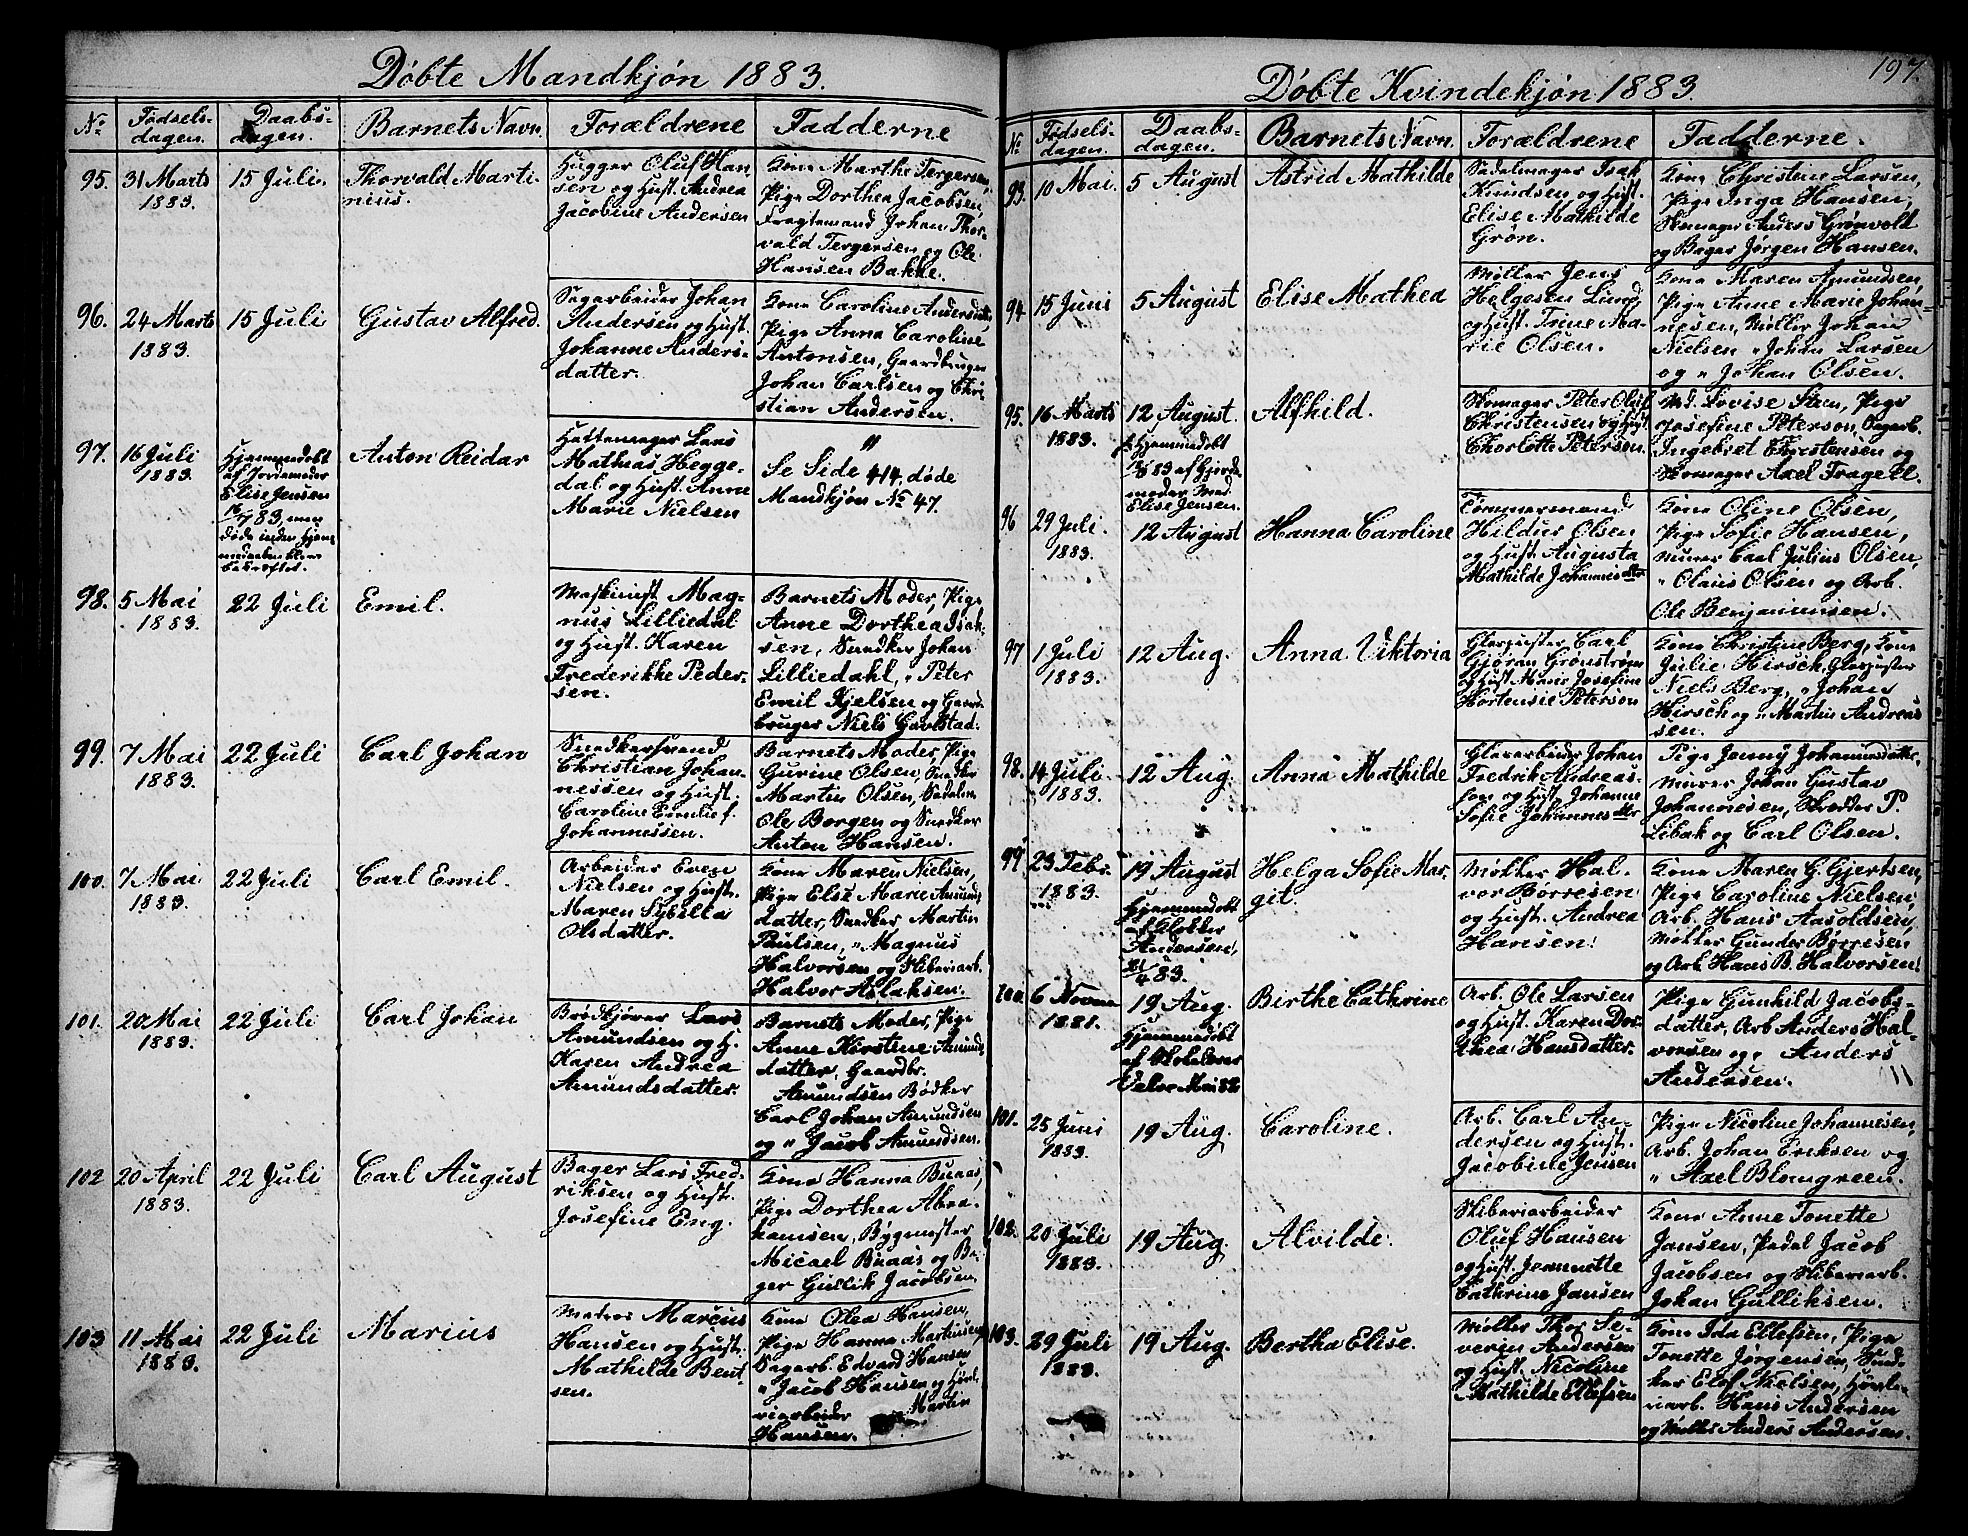 Døbte Mandkjøn 1883.
No
Fødsels-
dagen.
Daabs-
dagen.
Barnets Navn.
Forældrene
Fadderne
95.
31 Marts
1883.
15 Juli.
Thorvald Marti-
nius.
Hugger Oluf Han
sen og Hust. Andrea
Jacobine Andersen
Kone Marthe Tergersen,
Pige Dorthea Jacobsen,
Fragtemand Johan Thor-
vald Tergersen og Ole
Hansen Bakke.
96.
24 Marts
1883.
15 Juli
Gustav Alfred.
Sagarbeider Johan
Andersen og Hust.
Johanne Anders-
datter.
Kone Caroline
Pige Anna Caroline
Antonsen, Gaardbruger
Johan Carlsen og Chri-
stian Andersen.
97.
16 Juli
1883.
Hjemmedøbt
af Jordemoder
Elise Jensen
16/7 83, men
døde inden Hjem-
medaaben blev
bekræftet.
Anton Reidar
Hattemager Lars
Mathias Hegge-
dal og Hust. Anne
Marie Nielsen
"
Se Side 414, døde
Mandkjøn No 47.
98.
5 Mai
1883.
22 Juli
Emil.
Maskinist Mag-
nus Lilliedal
og Hust. Karen
Frederikke Peder-
sen.
Barnets Moder, Pige
Anne Dorthea Isak-
sen, Snedker Johan
Lilliedahl, " Peter
Emil Kjelsen og Gaard-
bruger Niels
99.
7 Mai
1883.
22 Juli
Carl Johan
Snedkersvend
Christian Johan-
nessen og Hust.
Caroline Emilie f.
Johannessen.
Barnets Moder, Pige
Gurine Olsen, Snedker
Martin Olsen,
Ole Borgen og Snedker
Anton Hansen.
100.
7 Mai
1883.
22 Juli
Carl Emil.
Arbeider Even
Nielsen og Hust.
Maren Sybilla
Olsdatter.
Kone Maren Nielsen,
Pige Else Marie Amunds-
datter, Snedker Martin
Paulsen, " Magnus
Halvorsen og Sliberiarb.
Halvor Aslaksen.
101.
20 Mai
1883.
22 Juli
Carl Johan
Brødkjører Lars
Amundsen og H.
Karen Andrea
Amundsdatter.
Barnets Moder, Pige
Anne Kirstene Amunds-
datter, Gaardbr.
Amundsen Bødker
Carl Johan Amundsen
og " Jacob Amundsen.
102
20 April
1883.
22 Juli
Carl August
Bager Lars Fred-
riksen og Hust.
Josefine Eng.
Kone Hanna Buaas,
Pige Dorthea Abra-
hamsen, Bygmester
Micael Buaas og Ba-
ger Gullik Jacobsen.
103
11 Mai
1883.
22 Juli
Marius
Matros Marcus
Hansen og Hust.
Mathilde Bent-
sen.
Kone Olea Hansen,
Pige Hanna Martinsen,
Sagarb. Edvard Hansen
" Jacob Hansen og Høvle-
riarbeider Martin
Hansen.
197.
Døbte Kvindekjøn 1883.
No
Fødsels-
dagen.
Daabs-
dagen.
Barnets Navn.
Forældrene
Fadderne.
93.
10 Mai.
5 August
Astrid Mathilde
Sadelmager Isak
Knudsen og Hust.
Elise Mathilde
Grøn.
Kone Christine Larsen,
Pige Inga Hansen,
Skomager Anders Grønvold
og Bager Jørgen Hansen.
94
15 Juni
5 August
Elise Mathea
Møller Jens
Helgesen Lund
og Hust. Trine Ma-
rie Olsen.
Kone Maren Amundsen,
Pige Anne Marie Johan-
nesen, Møller Johan
Nielsen " Johan Larsen
og " Johan Olsen.
95.
16 Marts
1883.
12 August
Hjemmedøbt
83 af Gjorde-
moder Mad.
Elise Jensen.
Alfhild.
Skomager Peter Oluf
Christensen og Hust.
Charlotte Petersen.
Md. Lovise Steen, Pige
Josefine Peterson, Sagarb.
Ingebret Christensen og
Skomager Axel Fragell.
96
29 Juli.
1883.
12 August
Hanna Caroline
Tømmermand
Hildus Olsen
og Hust. Augusta
Mathilde Johannisdtr
Kone Oline Olsen,
Pige Sofie Hansen,
Murer Carl Julius Olsen,
" Olaus Olsen og Arb.
Ole Benjaminsen.
97
1 Juli
1883.
12 Aug.
Anna Viktoria
Glaspuster Carl
Gjøran Grønstrøm
og Hust. Marie Josefine
Hortensie Peterson
Kone Christine Berg, Kone
Julie Hirsch, Glaspuster
Niels Berg, " Johan
Hirsch og " Martin Andreas-
sen.
98.
14 Juli.
1883.
12 Aug.
Anna Mathilde
Glasarbeider Johan
Fredrik Andreas-
son og Hust. Johanne
Sofie Johannesdtr
Pige Jenny Johannesdatter,
Murer Johan Gustav
Johannesen, Skredder P.
Libak og Carl Olsen.
99.
23 Febr.
1883.
19 August
Hjemmedøbt
af Klokker
Andersen,
83.
Helga Sofie Mar-
git.
Møller Hal-
vor Børresen
og Hust. Andrea
Hansen.
Kone Maren G. Gjertsen,
Pige Caroline Nielsen,
Arb. Hans Aasoldsen,
Møller Gunder Børresen
og Arb. Hans B. Halvorsen.
100.
6 Novem
1881.
19 Aug.
Hjemmedøbt
af Skolelærer
Birthe Cathrine
Arb. Ole Larsen
og Hust. Karen Dor-
thea Hansdatter.
Pige Gunhild Jacobs-
datter, Arb Anders Hal-
vorsen og " Anders
Andersen.
101.
25 Juni
1883.
19 Aug.
Caroline.
Arb. Carl An-
dersen og Hust.
Jacobine Jensen
Pige Nicoline Johannesen,
Arb. Johan Eriksen og
" Axel Blomgreen.
102.
20 Juli
1883.
19 Aug.
Alvilde.
Sliberiarbeider
Oluf Hansen
og Hust. Jeannette
Cathrine Jansen
Kone Anne Tonette
Jansen, Pedel Jacob
Jacobsen og Sliberiarb.
Johan Gulliksen.
103.
29 Juli
1883.
19 Aug.
Bertha Elise.
Møller Thor Se-
verin Andersen
og Hust. Nicoline
Mathilde Ellefsen
Kone Ida Ellefsen, Pige
Tonette Jørgensen, Sned-
ker Elef Nielsen, Høvle-
riarb. Hans Andersen
og Møller Anders Andersen.